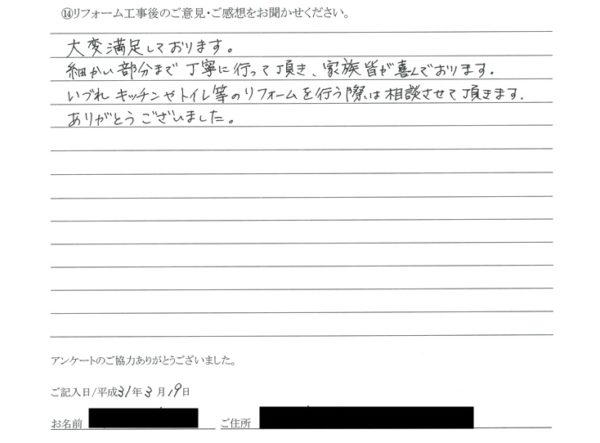 ⑭リフォーム工事後のご意見・ご感想をお聞かせください。
大変満足しております。
細かい部分まで丁寧に行って頂き、家族皆が喜んでおります。
いづれキッチンやトイレ等のリフォームを行う際は相談させて頂きます。
ありがとうございました。
アンケートのご協力ありがとうございました。
ご記入日/平成31年3月19日
お名前 ご住所